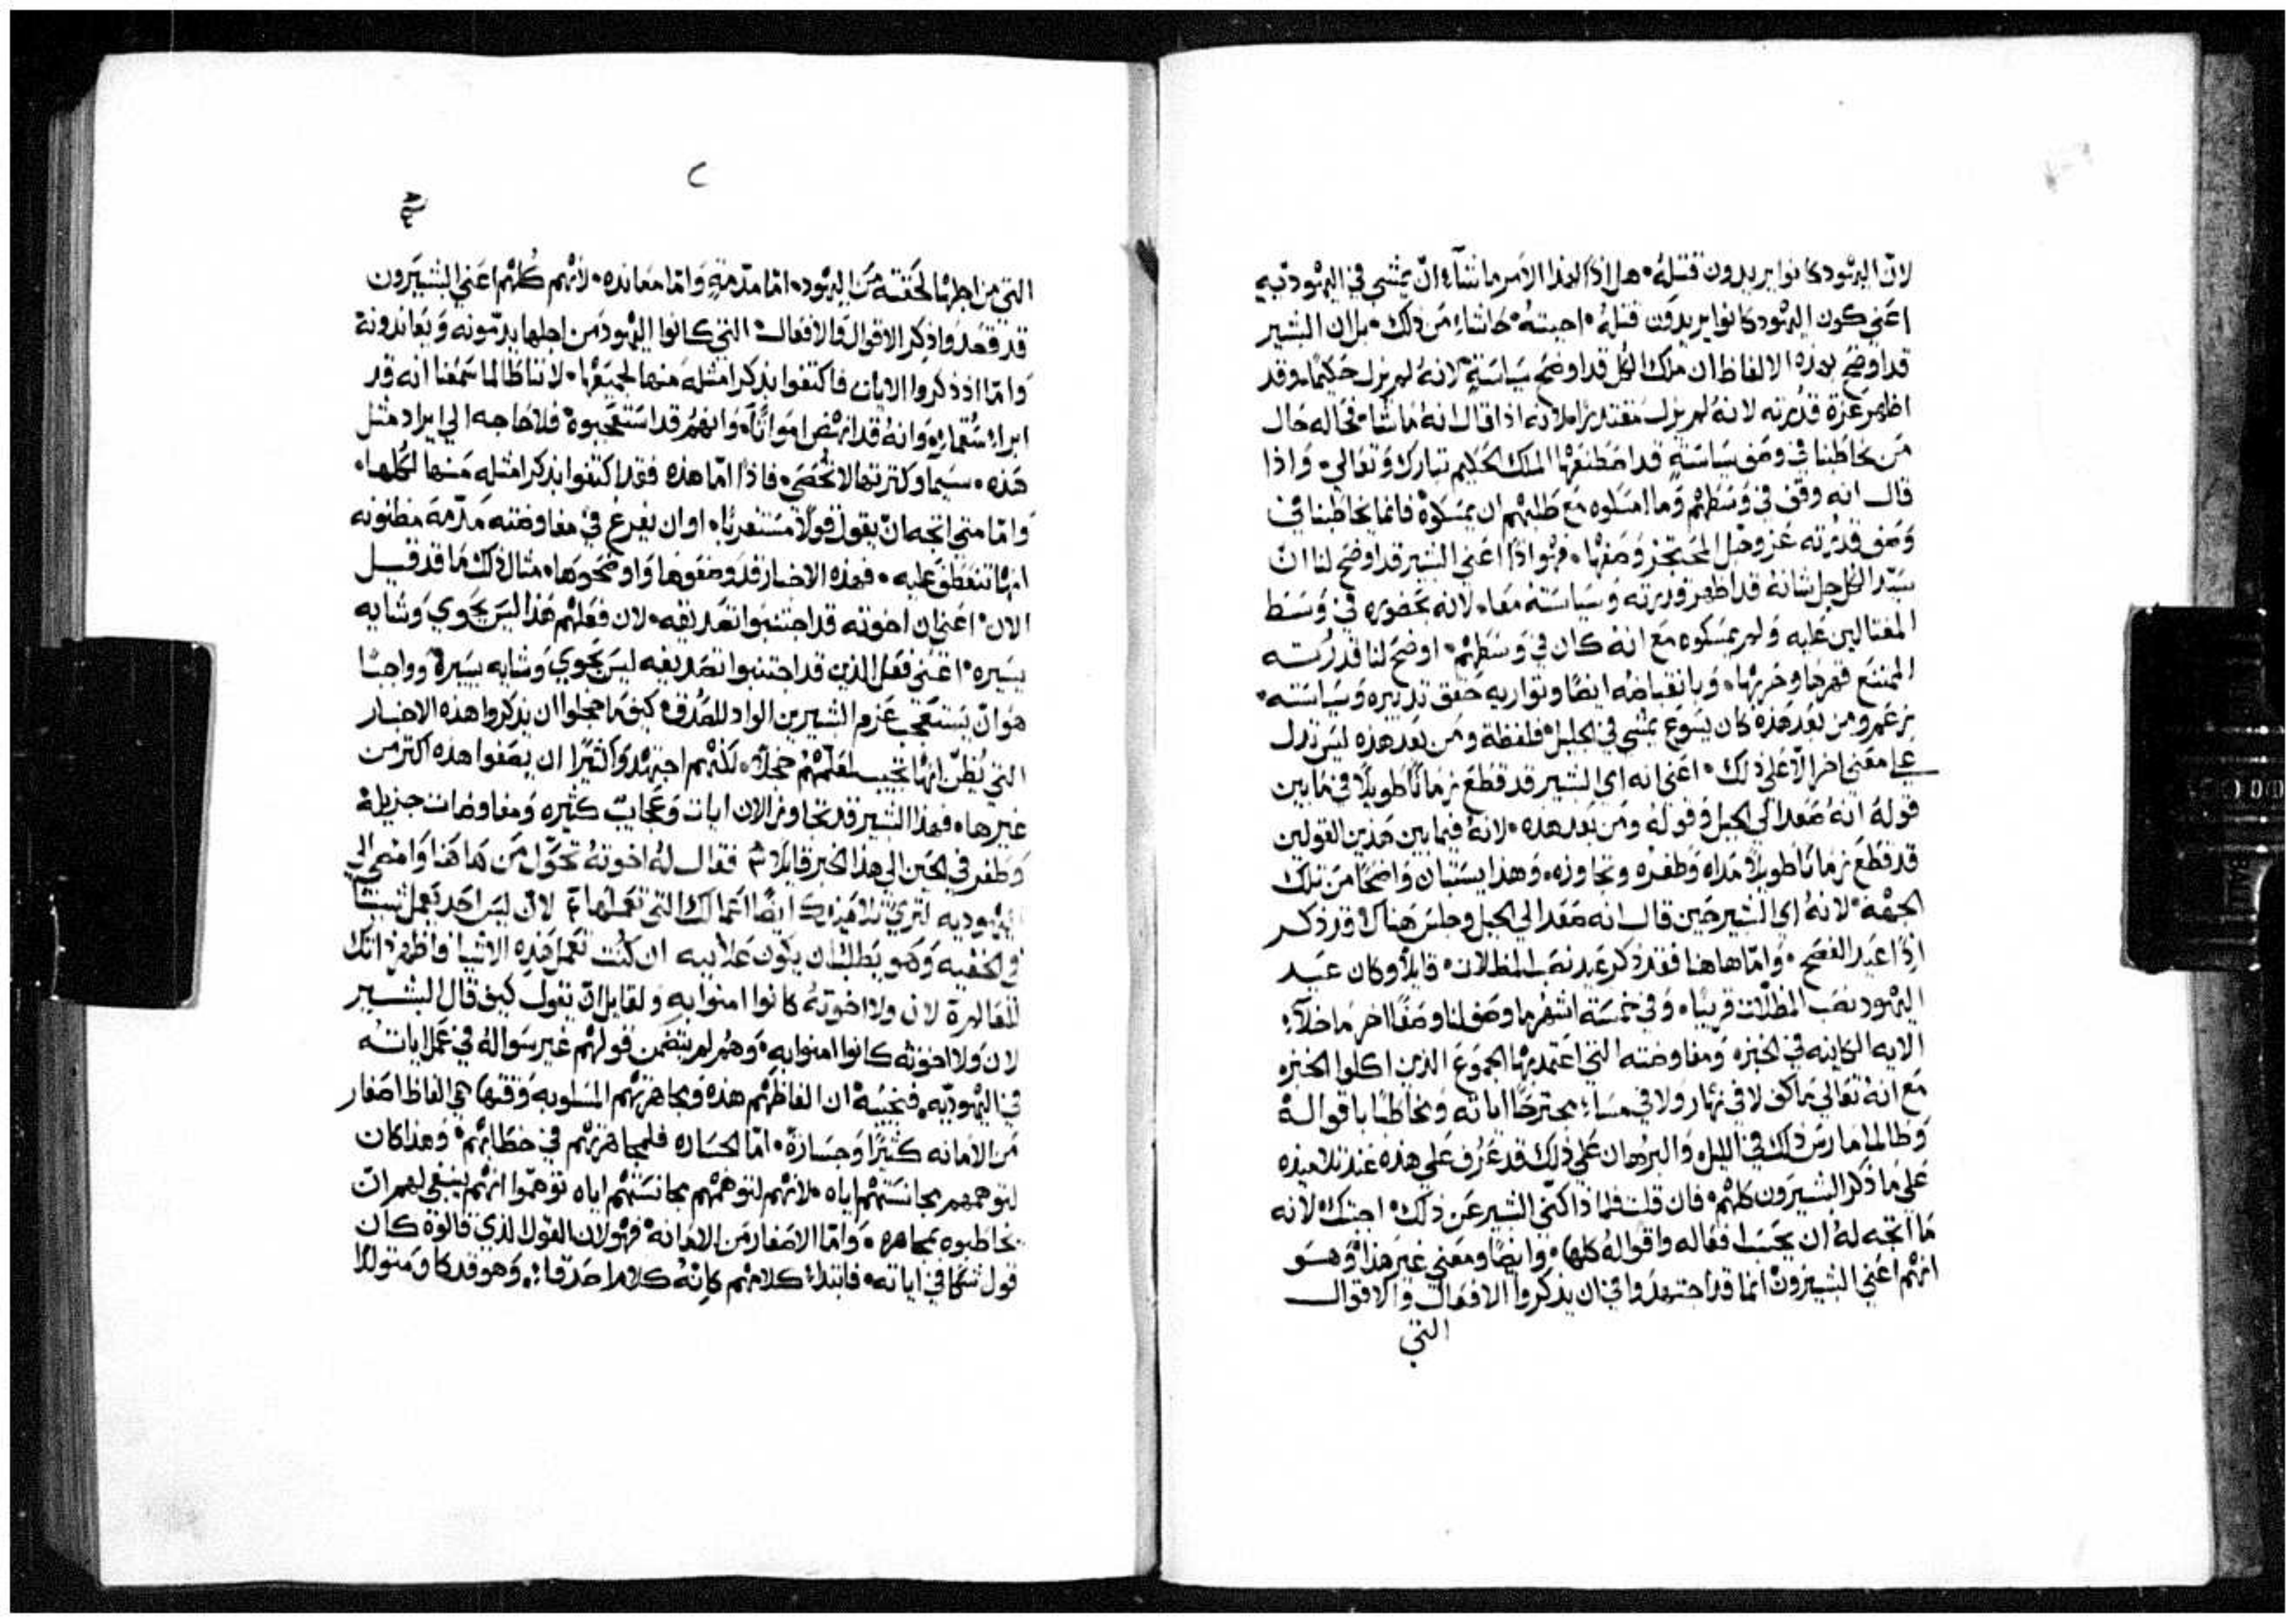 لانّ اليهود كانوا يريدون قتلهُ، هل اذًا لهذا الامر ما شآء ان يمشي في اليهوديه
اعني كون اليهود كانوا يريدون قتلهُ، اجبتهُ، حاشاءِ من ذلك، بل ان البشير
قد اوضح بهذه الالفاظ ان ملك الكل قد اوضح سياسته، لانهُ لم يزل حكيمًا، وقد
اظهر عزة قدرته لانهُ لم يزل مقتدرًا، لانه اذا قال انهُ ما شاء فحاله حال
من يخاطبنا في وصف سياسَتهِ قد اصطنعها الملك الحكيم تبارك وتعالي، واذا
قال انه وقف في وسَطهم وما امسَكوه مع طلبهم ان يمسَكوهُ فانما يخاطبنا في
وصف قدرته عز وجل المحتجز وصفها، فهو اذًا اعني البشير قد اوضح لنا انّ
سيّد الكل جل شانهُ قد اظهر قدرته وسياسَتهُ معًا، لانه بحضوره في وسَط
المغتالين عليه ولم يمسكوه مع انهُ كان في وسَطهم، اوضح لنا قدرته
الممتنع قهرها وحربها، وبانقباضه ايضًا وتواريه حقق تدبيره وسياسَته،
زعم ومن بعد هذه كان يسوع يمشي في الجليل، فلفظة ومن بعد هذه ليس تدل
علي معني اخر الّا علي ذلك، اعني انه اي البشير قد قطع زمانًا طويلًا في ما بين
قولهُ انهُ صعد الي الجبل وقولهُ ومن بعد هذه، لانهُ فيما بين هذين القولين
قد قطع زمانًا طويلًا مداه وطفره وتجاوزه، وهذا يستبان واضحًا من تلك
الجهة، لانهُ اي البشير حين قال انه صعد الي الجبل وجلس هناك، قد ذكر
اذًا عيد الفصح، وامّا هاهنا فقد ذكر عيد نصَب المظلات، قايلًا وكان عيد
اليهود نصب المظلّات قريبًا، وفي خمسَة اشهر ما وصف لنا وصفًا اخر ما خلآءِ
الايه الكاينه في الخبزه ومفاوضته التي اعتمد بها الجموع الذين اكلوا الخبزه
مع انهُ تعالي ما كف لا في نهار ولا في مساءِ مجترحًا اياته ومخاطبًا باقوالهُ
وطالما مارس ذلك في الليل، والبرهان علي ذلك قد عُرف علي هذه عند تلاميذه
علي ما ذكر البشيرون كلهم، فان قلت فلماذا اكتّي البشير عن ذلك، اجبتك لانه
ما اتجه لهُ ان يحسب افعاله واقوالهُ كلها، وايضًا ومعني غير هذا، وهو
انهم اعني البشيرون انما قد اجتهدوا في ان يذكروا الافعال والاقوال
التي
ح
التي من اجلها لحقته من اليهود، امّا مذمة وامّا معانده، لانهم كُلهم اعني البشيرون
قد قصدوا ذكر الاقوال والافعال التي كانوا اليهود من اجلها يذمّونه ويعاندونهُ
وامّا اذ ذكروا الايات فاكتفوا بذكر امثلهَ منها لجميعها، لاننا طالما سَمعنا انه قد
ابراء سُقماءِ، وانهُ قد انهض امواتًا، وانهم قد استعجبوهُ فلا حاجه الي ايراد مثل
هذه، سيما وكثرتها لا تُحصَي، فاذًا امّا هذه فقد اكتفوا بذكر امثله منها لكلها،
وامّا متي اتجه ان يقول قولًا مستغربًا، او ان يفرغ في مفاوضته مذمة مظنونه
انها تنعطف عليه، فهذه الاخبار قد وصفوها واوضحوها، مثال ذلك ما قد قيل
الان، اعني ان اخوته قد اجتنبوا تصديقه، لان فعلهم هذا ليس يحوي وشايه
يسَيره، اعني فعل الذين قد اجتنبوا تصديقه ليس يحوي وشايه يسيرة، وواجبًا
هو ان يستعجب عزم البشيرين الواد للصدق كيف ما خجلوا ان يذكروا هذه الاخبار
التي يُظن انها تجيب لمعلمهم خجلًا، لكنهم اجتهدوا كثيرًا ان يصفوا هذه اكثر من
غيرها، فهذا البشير قد تجاوز الان ايات وعجايب كثيره ومفاوضات جزيلة
وطفر في الحين الي هذا الخبر قايلًا، فقال لهُ اخوتهُ تحوّل من هاهنا وامضي الي
اليهوديه لتري تلاميذك ايضًا اعمالك التي تعملها، لان ليس احد يعمل شيئًا
في الخفيه وهو يطلب ان يكون علانيه ان كنت تعمل هذه الاشيا فاظهر ذاتك
للعالم، لان ولا اخوتهُ كانوا امنوا به، ولقايل ان يقول كيف قال البشير
لان ولا اخوته كانوا امنوا به، وهم لم يتضمن قولهم غير سَوالهُ في عمل اياته
في اليهوديّه، فنجيبهُ ان الفاظهم هذه ومجاهرتهم المسَلوبه وقتها، هي الفاظ اصفار
من الامانه كثيرًا وجسَارة، امّا الجسَاره فلمجاهرتهم في خطابهم، وهذا كان
لتوهمهم مجانسَتهم اياه، لانهم لتوهمهم مجانستهم اياه توهّموا انهم ينبغي لهم انّ
يخاطبوه بمجاهره، وامّا الاصفار من الامانه، فهو لان القول الذي قالوهُ كان
قول شكا في اياته، فابتداءِ كلامهم كانهُ كلام اصدقاءِ، وهو قد كا ومتولدًا